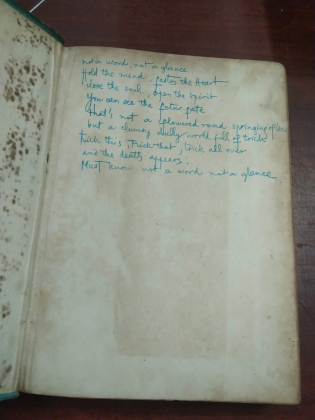 not a word, not a glance
Hold the mind, fastes the Heart
close the soul, open the spirit
You can see the fatus gate
that's not a flowered road springing of
but a clumsy dully world full of trick
trick this, trick that, trick all over
and the death appears.
Must know not a word not a glance.